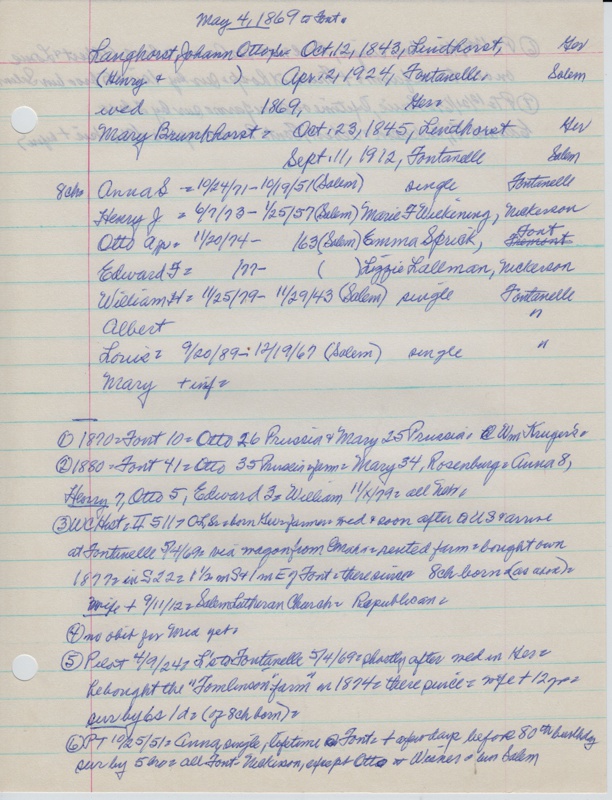 May 4, 1869 = Font.
Langhorst, Johann Otto = Oct. 12, 1843, Lindhorst, Ger
(Henry + Apr. 2, 1924, Fontanelle. Salem
wed 1869, Ger =
Mary Brunkhorst = Oct. 23, 1845, Lindhorst Ger
Sept. 11, 1912, Fontanelle Salem
8chn Anna S = 10/24/71 - 10/9/51 (Salem) single Fontanelle
Henry J = 6/7/73 - 1/25/57 (Salem) Marie F Wickening, Nickerson
Otto = 11/20/74 - /63 (Salem) Emma Sprick, Font Fremont
Edward F = /77 - ( ) Lizzie Lallman, Nickerson
William H = 11/25/79 - 11/29/43 (Salem) single Fontanelle
Albert "
Louis = 9/20/89 - 12/19/67 (Salem) single "
Mary + inf =
① 1870 = Font 10 = Otto 26 Prussia + Mary 25 Prussia = @ Wm Kruger's =
② 1880 = Font 41 = Otto 35 Prussia = farm = Mary 34, Rosenburg = Anna 8,
Henry 7, Otto 5, Edward 3 = William 11/79 = all Neb.
③ WC Hist = II 511 = born Ger = farmer = wed + soon after @ US + arrive
at Fontanelle 5/4/69 = via wagon from Omaha = rented farm = bought own
1877 = in S 22 = 1 1/2 m S + 1 m E of Font = there since = 8ch born (as above) =
Wife + 9/11/12 = Salem Lutheran Church = Republican =
④ no obit for Mrd yet =
⑤ Pilot 4/9/24 = L to Fontanelle 5/4/69 = shortly after wed in Ger =
he bought the "Tomlinson" farm" in 1874 = there since = wife + 12 yr =
sur by 6s 1d = (of 8ch born) =
⑥ PT 10/25/51 = Anna, single, lifetime @ Font = + days before 80th birthday
sur by 5 bro = all Font - Nickerson, except Otto Wisner = bur Salem